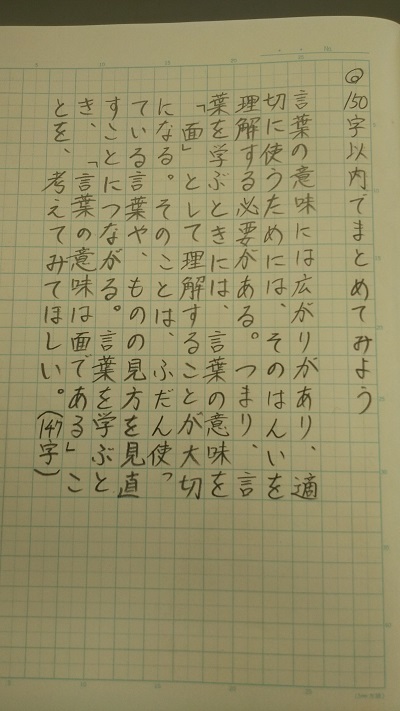 ◎150字以内でまとめてみよう
言葉の意味には広がりがあり、適
切に使うためには、そのはんいを
理解する必要がある。つまり、言
葉を学ぶときには、言葉の意味を
「面」として理解することが大切
になる。そのことは、ふだん使っ
ている言葉や、ものの見方を見直
すことにつながる。言葉を学ぶと
き、「言葉の意味は面である」こ
とを、考えてみてほしい。(147字)